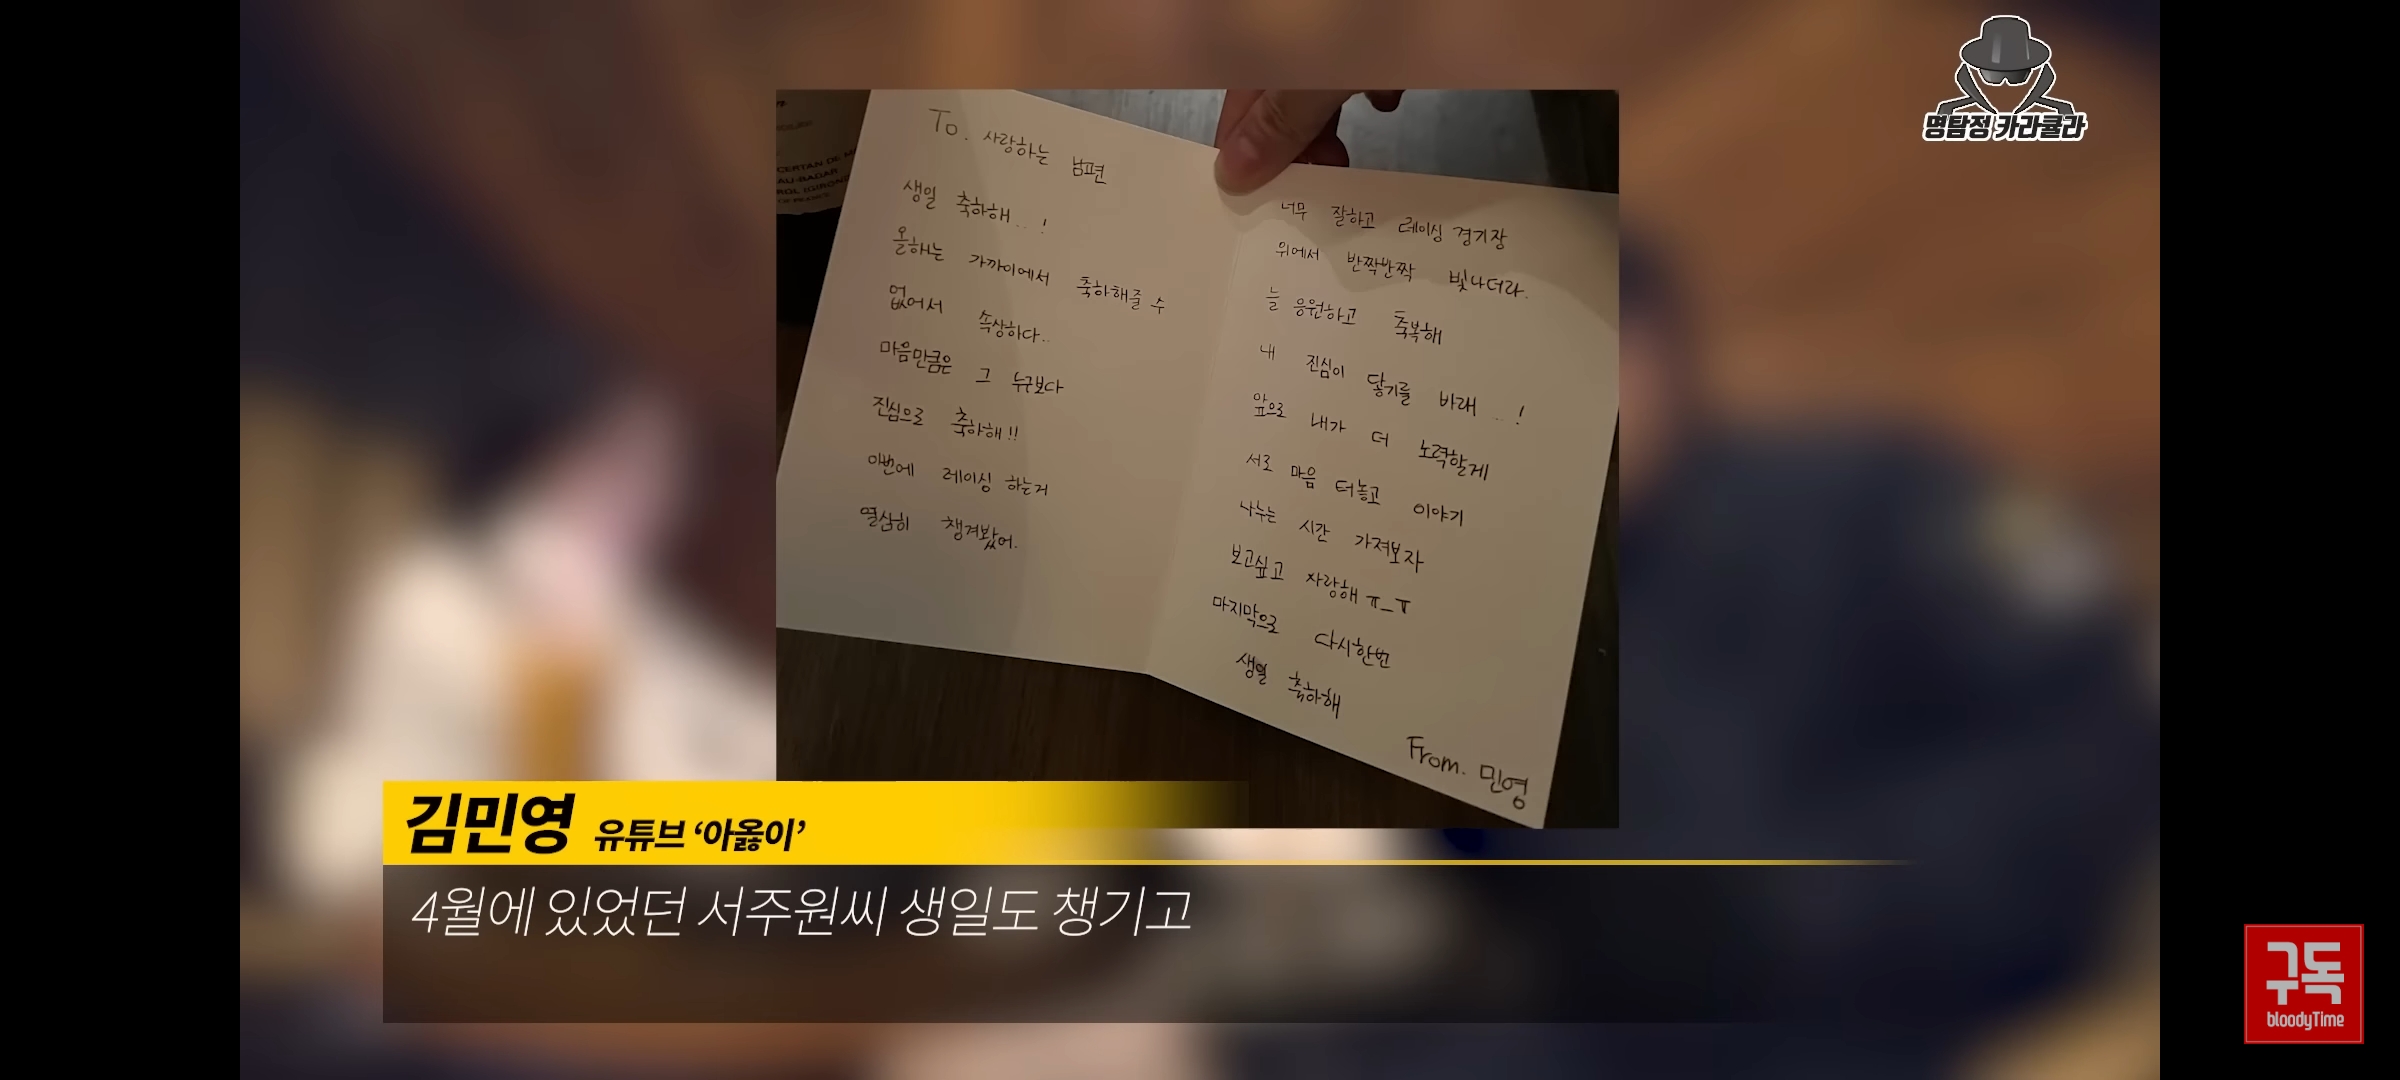 명탐정 카라큘라
CERTAN DE M
AU-BADAR
To. 사랑하는 남편
생일 축하해...!
올해는 가까이에서 축하해줄 수
없어서 속상하다..
마음만큼은 그 누구보다
진심으로 축하해!!
이번에 레이싱 하는거
열심히 챙겨봤어.
너무 잘하고 레이싱 경기장
위에서 반짝반짝 빛나더라.
늘 응원하고 축복해
내 진심이 닿기를 바래...!
앞으로 내가 더 노력할게
서로 마음 터놓고 이야기
나누는 시간 가져보자
보고싶고 사랑해 ㅠ_ㅠ
마지막으로 다시한번
생일 축하해
From. 민영
김민영 유튜브 ‘아옳이’
4월에 있었던 서주원씨 생일도 챙기고
구독
bloodyTime